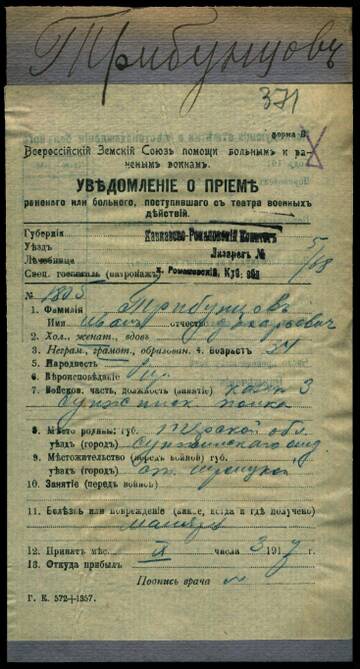 Трибунцовъ
371
форма В.
Всероссійскій Земскій Союзъ помощи больнымъ и ра-
ненымъ воинамъ.
УВѢДОМЛЕНІЕ О ПРІЕМѢ
раненаго или больного, поступившаго съ театра военныхъ
дѣйствій.
Губернія Кавказско-Романовскій Комитетъ
Уѣздъ Лазаретъ №
Лечебница
Спец. госпиталь (патронажъ) х. Романовскій, Куб. обл
№ 1805
1. Фамилія Трибунцовъ
Имя Иванъ отчество Захарьевич
2. Хол., женат., вдовъ
3. Неграм., грамот., образован. 4. Возрастъ 34
5. Народность
6. Вѣроисповѣданіе
7. Войсков. часть, должность (занятіе) казак 3
Сунженск полка
8. Мѣсто родины: губ. Терской обл
уѣздъ (городъ) Сунженскаго
9. Мѣстожительство (передъ войной) губ.
уѣздъ (городъ) ст.
10. Занятіе (передъ войной)
11. Болѣзнь или поврежденіе (какое, когда и гдѣ получено)
малярія
12. Принятъ мѣс. IX числа 3 1917 г.
13. Откуда прибылъ
Подпись врача
Г. Е. 572+1357.